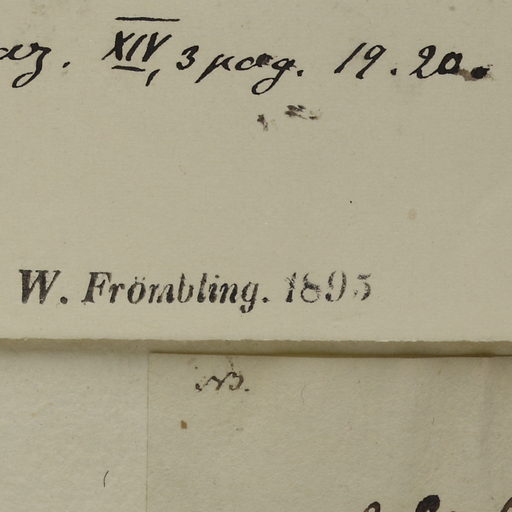 XIV, 3 pag. 19. 20.
W. Frömbling. 1895